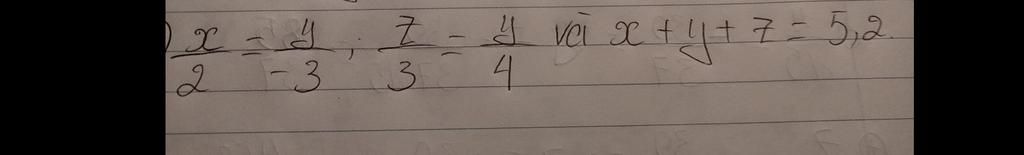 ) x/2 = y/-3 ; z/3 = y/4 với x + y + z = 5,2.